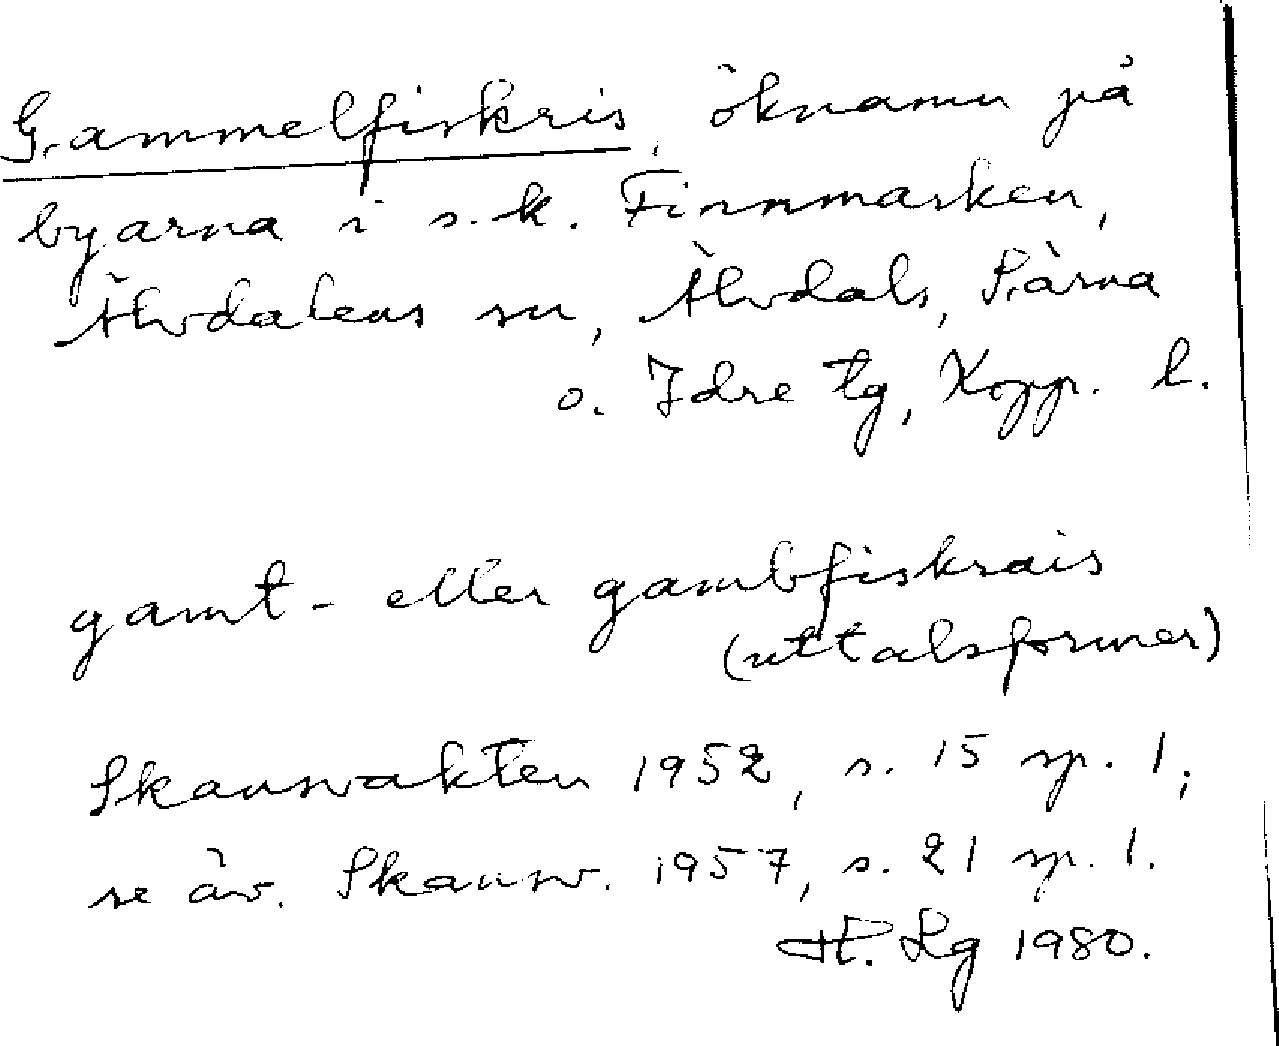 Gammelfiskris, öknamn på
byarna i s.k. Finnmarken,
Älvdalens sn, Älvdals, Särna
o. Idre tg, Kopp. l.
gamt- eller gambfiskrais
(uttalsformer)
Skansvakten 1952, s. 15 sp. 1;
se äv. Skansv. 1957, s. 21 sp. 1.
H. Lg 1980.